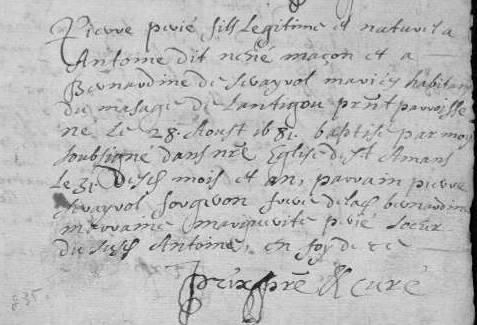 Pierre perié fils Legitime et naturel a
Antoine dit maçon et a
Bernardine de mariés habitans
du masage de Lantigou prñt parroisse
né Le 28. Aoust 1681. baptisé par moy
soubsigné dans nr̃e Eglise de St Amans
Le 31. desd mois et an, parrain pierre
frere de lad bernardine
marraine marguerite perié soeur
dud Antoine, en foy de ce
prix pr̃e & curé
835.